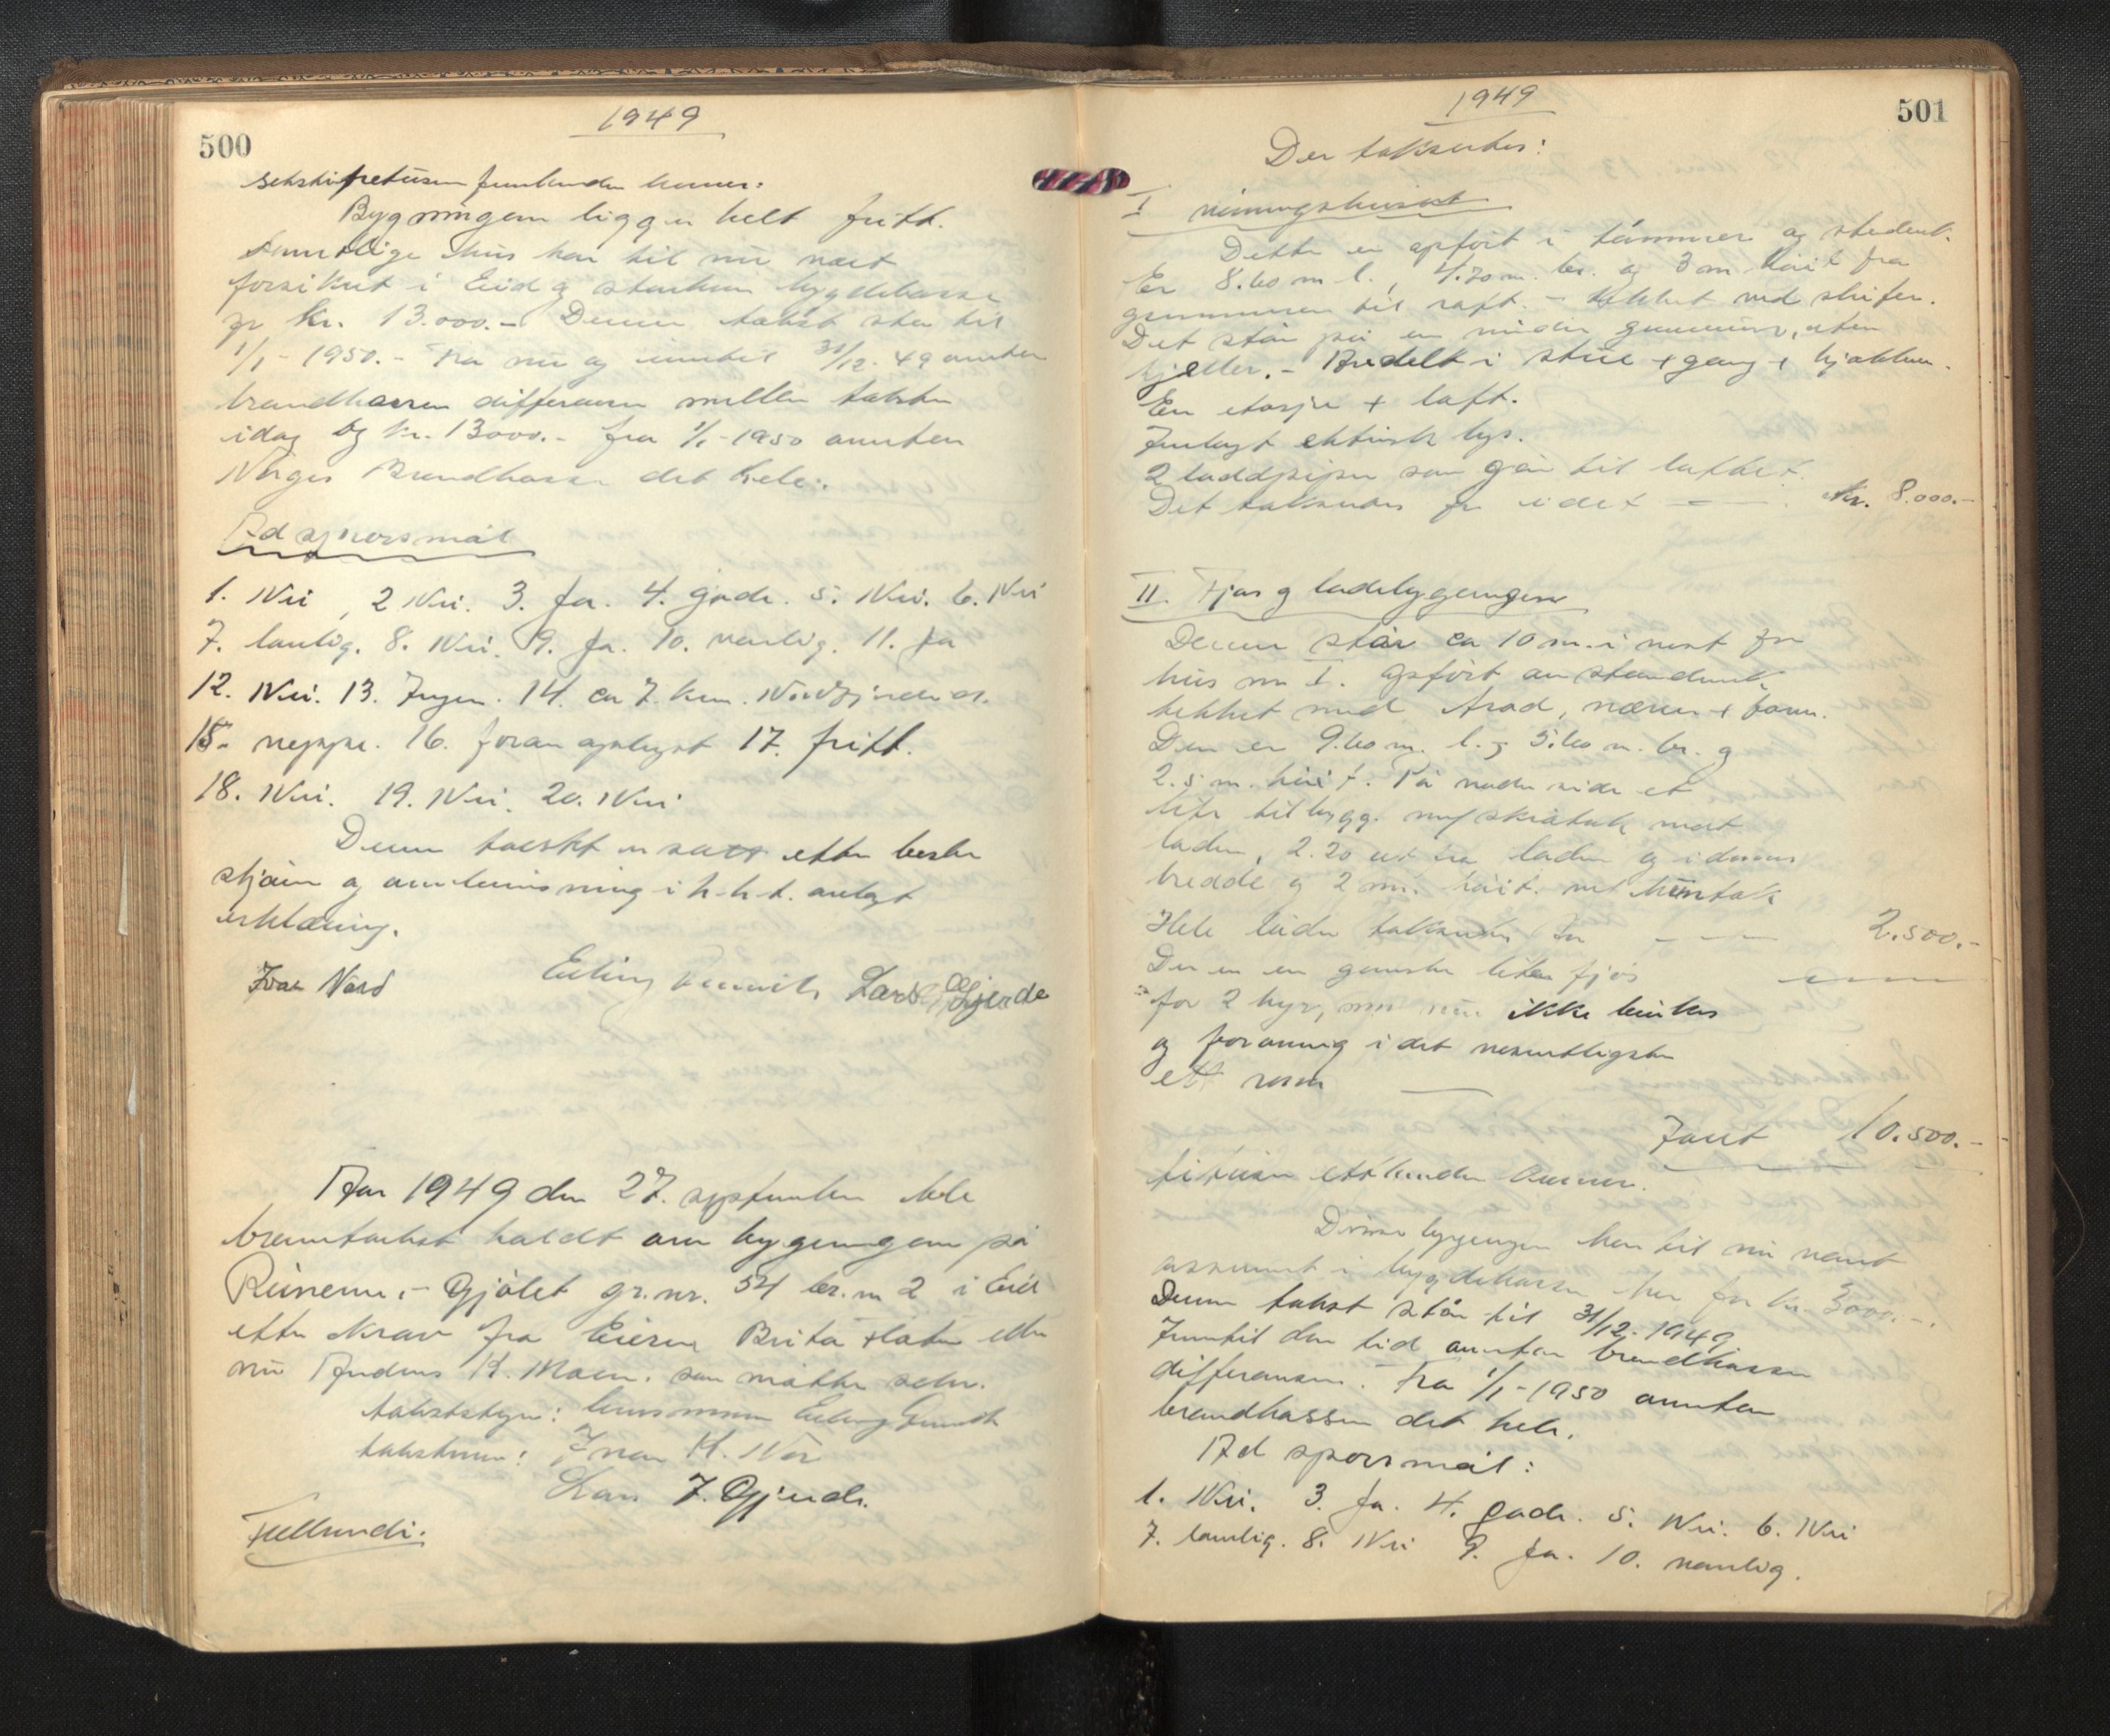 500
1949
Bygningen ligger helt fritt.
Samtlige hus har til nu vært
forsikret i Eid og bygdekasse
for kr. 13.000.- Denne takst står til
1/1-1950.- Fra nu og inntil 31/12.49 overtar
brandkassen differansen mellem taksten
idag og kr. 13000.- fra 1/1-1950 overtar
Norges Brandkasse det hele.
Ad spørsmål
1. Nei, 2 Nei. 3. Ja. 4. gode. 5. Nei. 6. Nei
7. lovlig. 8. Nei. 9. Ja. 10. vanlig. 11. Ja
12. Nei. 13. Ingen. 14. ca 7. km.
15. neppe. 16. foran oplyst 17. fritt.
18. Nei. 19. Nei. 20. Nei
Denne takst er satt efter beste
skjøn og i h.h.t. avlagt
erklæring.
Ivar Nord Erling Lars J. Gjerde
Aar 1949 den 27. september ble
branntakst holdt over bygningene på
gr.nr. 54 br.nr 2 i Eid
etter krav fra Eieren Brita eller
nu Anders K. Moen. som møtte selv.
takststyre: lensmann Erling
takstmenn: Ivar K. Nor
Lars J. Gjerde.
501
1949
Der takseres:
I våningshuset
Dette er opført i tømmer og stenderv.
Er 8.60 m l., 4.70 m. br. og 3 m høit fra
grunnmuren til raft. - tekket med skifer.
Det står på en mindre grunnmur, uten
kjeller. - Inndelt i stue + gang + kjøkken.
En etasje + loft.
Innlagt elektrisk lys.
2 som går til loftet.
Det takseres for i det - - kr. 8.000.-
II. Fjøs og ladebygningen
Denne står ca 10 m. i nord for
hus nr I. opført av stenderverk
tekket med brød, næver + torv.
Den er 9.60 m. l. og 5.60 m. br. og
2.5 m. høit. På nedre side et
lite tilbygg. m/skråtak mot
laden, 2.20 ut fra laden og i dennes
bredde og 2 m. høit. med
Hele laden takseres for - - 2.500.-
Der er en ganske liten fjøs
for 2 kyr, men nu ikke brukes
og forøvrig i det vesentligste
ett rom
Tilsammen 10.500.-
titusen etthundre kroner.
Disse bygninger har til nu været
assurert i bygdekasse her for kr. 3000.-.
Denne takst står til 31/12-1949
Inntil den tid overtar brandkassen
differansen. Fra 1/1-1950 overtar
brandkassen det hele.
Ad spørsmål:
1. Nei. 3. Ja. 4. gode. 5. Nei. 6. Nei
7. lovlig. 8. Nei 9. Ja. 10. vanlig.